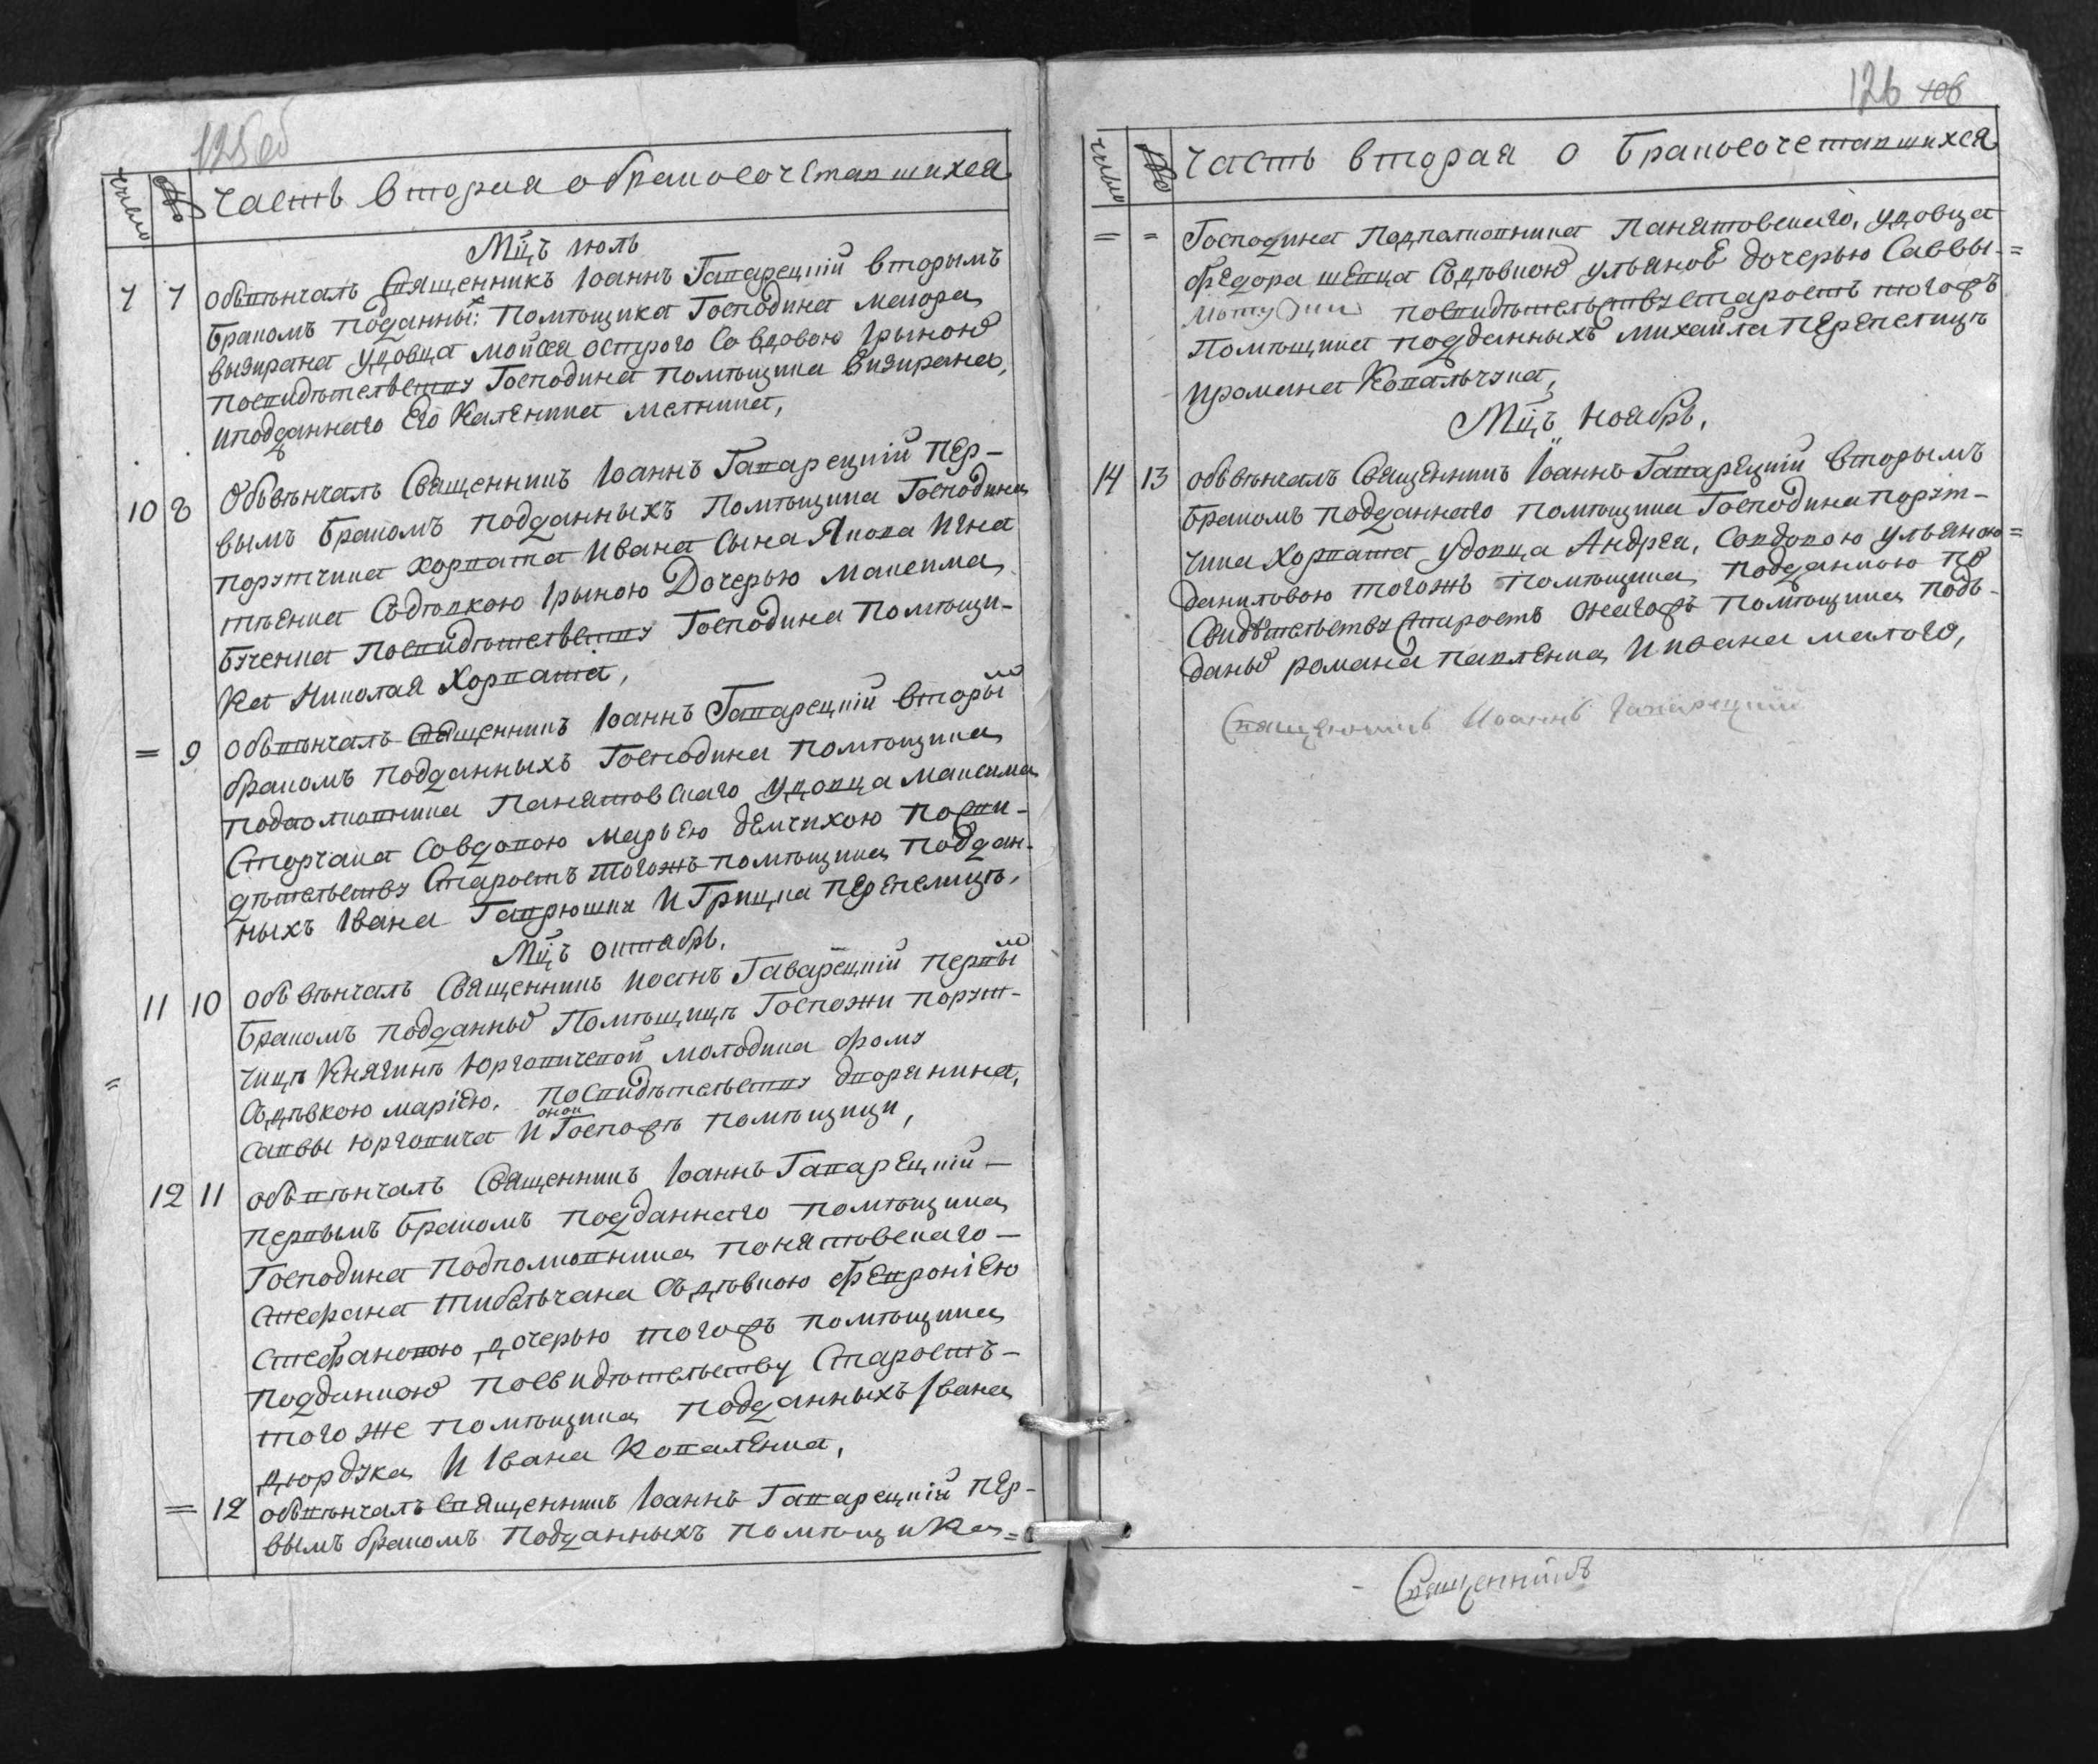 125 об
число
№
Часть вторая о бракосочетавшихся
Мцъ июль
7 7 Обвѣнчалъ Священникъ Iоаннъ Гаварецкiй вторымъ
бракомъ поданный помѣщика Господина маиора
вызирана удовца мойсея острого со вдовою Iрыною
посвидѣтельству Господина помѣщика визирана,
иподданнаго Его Каленика мелника,
10 8 Обвѣнчалъ Священникъ Iоаннъ Гаварецкiй пер-
вымъ бракомъ подданныхъ помѣщика Господина
порутчика хорвата Ивана сына Якова Игна
тѣенка Сдѣвкою Iрыною Дочерью максима
бученка посвидѣтельству Господина помѣщи-
ка Николая Хорвата,
= 9 Обвѣнчалъ Священникъ Iоаннъ Гаварецкiй вторый
бракомъ подданныхъ Господина помѣщика
подполковника панятовскаго удовца максима
Сторчака совдовою марьею демчихою посви-
дѣтельству Старостъ тогожъ помѣщика поддан-
ныхъ Iвана Гаврюшки и Грицка перепелицѣ,
Мцъ октябрь.
11 10 Обвѣнчалъ Священникъ Иоанъ Гаварецкiй первый
бракомъ подданный Помѣщицѣ Госпожи порут-
чицѣ Княгинѣ Юрговичевой молодика фому
Содѣвкою марiею. посвидѣтельству дворянина,
саввы юрговича и оной Госпожѣ помѣщици,
12 11 обвѣнчалъ Священникъ Iоаннъ Гаварецкiй —
первымъ бракомъ подданнаго помѣщика
Господина подполковника понятовскаго —
стефана Содѣвкою февронiею
стефановою дочерью тогожъ помѣщика
подданною посвидѣтельству Старостъ —
того же помѣщика подданныхъ Iвана
дюрдука И Iвана Коваленка,
= 12 обвѣнчалъ Священникъ Iоаннъ Гаварецкiй пер-
вымъ бракомъ подданныхъ помѣщика =
126 106
число
№
Часть вторая о бракосочетавшихся
= = Господина подполковника панятовскаго, удовца
федора шевца Содѣвкою ульяною дочерью Саввы =
посвидѣтельству старостъ тогожъ
помѣщика подданныхъ михайла перепелицѣ
иромана Ковальчука,
Мцъ ноябрь,
14 13 обвѣнчалъ Священникъ Iоаннъ Гаварецкiй вторымъ
бракомъ подданнаго помѣщика Господина порут-
чика Хорвата удовца Андрея, Совдовою ульяною =
даниловою тогожъ помѣщика подданною по
Свидѣтельству старостъ онагожъ помѣщика подъ-
даныъ романа павленка И ивана малого,
Священникъ Иоаннъ Гаварецкий
Священникъ